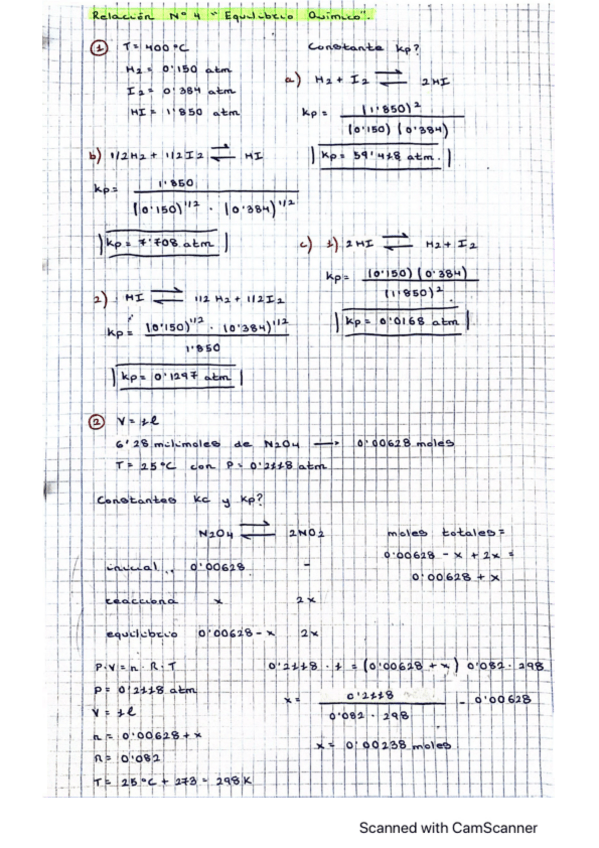 Relación Nº 4 "Equilibrio Químico".
① T = 400 ºC
H2 = 0'150 atm
I2 = 0'384 atm
HI = 1'850 atm
Constante Kp?
a) H2 + I2 ⇌ 2HI
Kp = (1'850)² / (0'150) (0'384)
Kp = 59'418 atm.
b) 1/2H2 + 1/2I2 ⇌ HI
Kp = 1'850 / (0'150)^1/2 · (0'384)^1/2
Kp = 7'708 atm
c) 1) 2HI ⇌ H2 + I2
Kp = (0'150) (0'384) / (1'850)²
Kp = 0'0168 atm
2) HI ⇌ 1/2 H2 + 1/2 I2
Kp = (0'150)^1/2 · (0'384)^1/2 / 1'850
Kp = 0'1297 atm
② V = 1l
6'28 milimoles de N2O4 → 0'00628 moles
T = 25ºC con P = 0'2118 atm
Constantes Kc y Kp?
N2O4 ⇌ 2NO2
inicial 0'00628 -
reacciona x 2x
equilibrio 0'00628-x 2x
moles totales =
0'00628 - x + 2x =
0'00628 + x
P·V = n·R·T
P = 0'2118 atm
V = 1l
n = 0'00628 + x
R = 0'082
T = 25ºC + 273 = 298K
0'2118 · 1 = (0'00628 + x) 0'082 · 298
x = 0'2118 / 0'082 · 298 - 0'00628
x = 0'00238 moles
Scanned with CamScanner